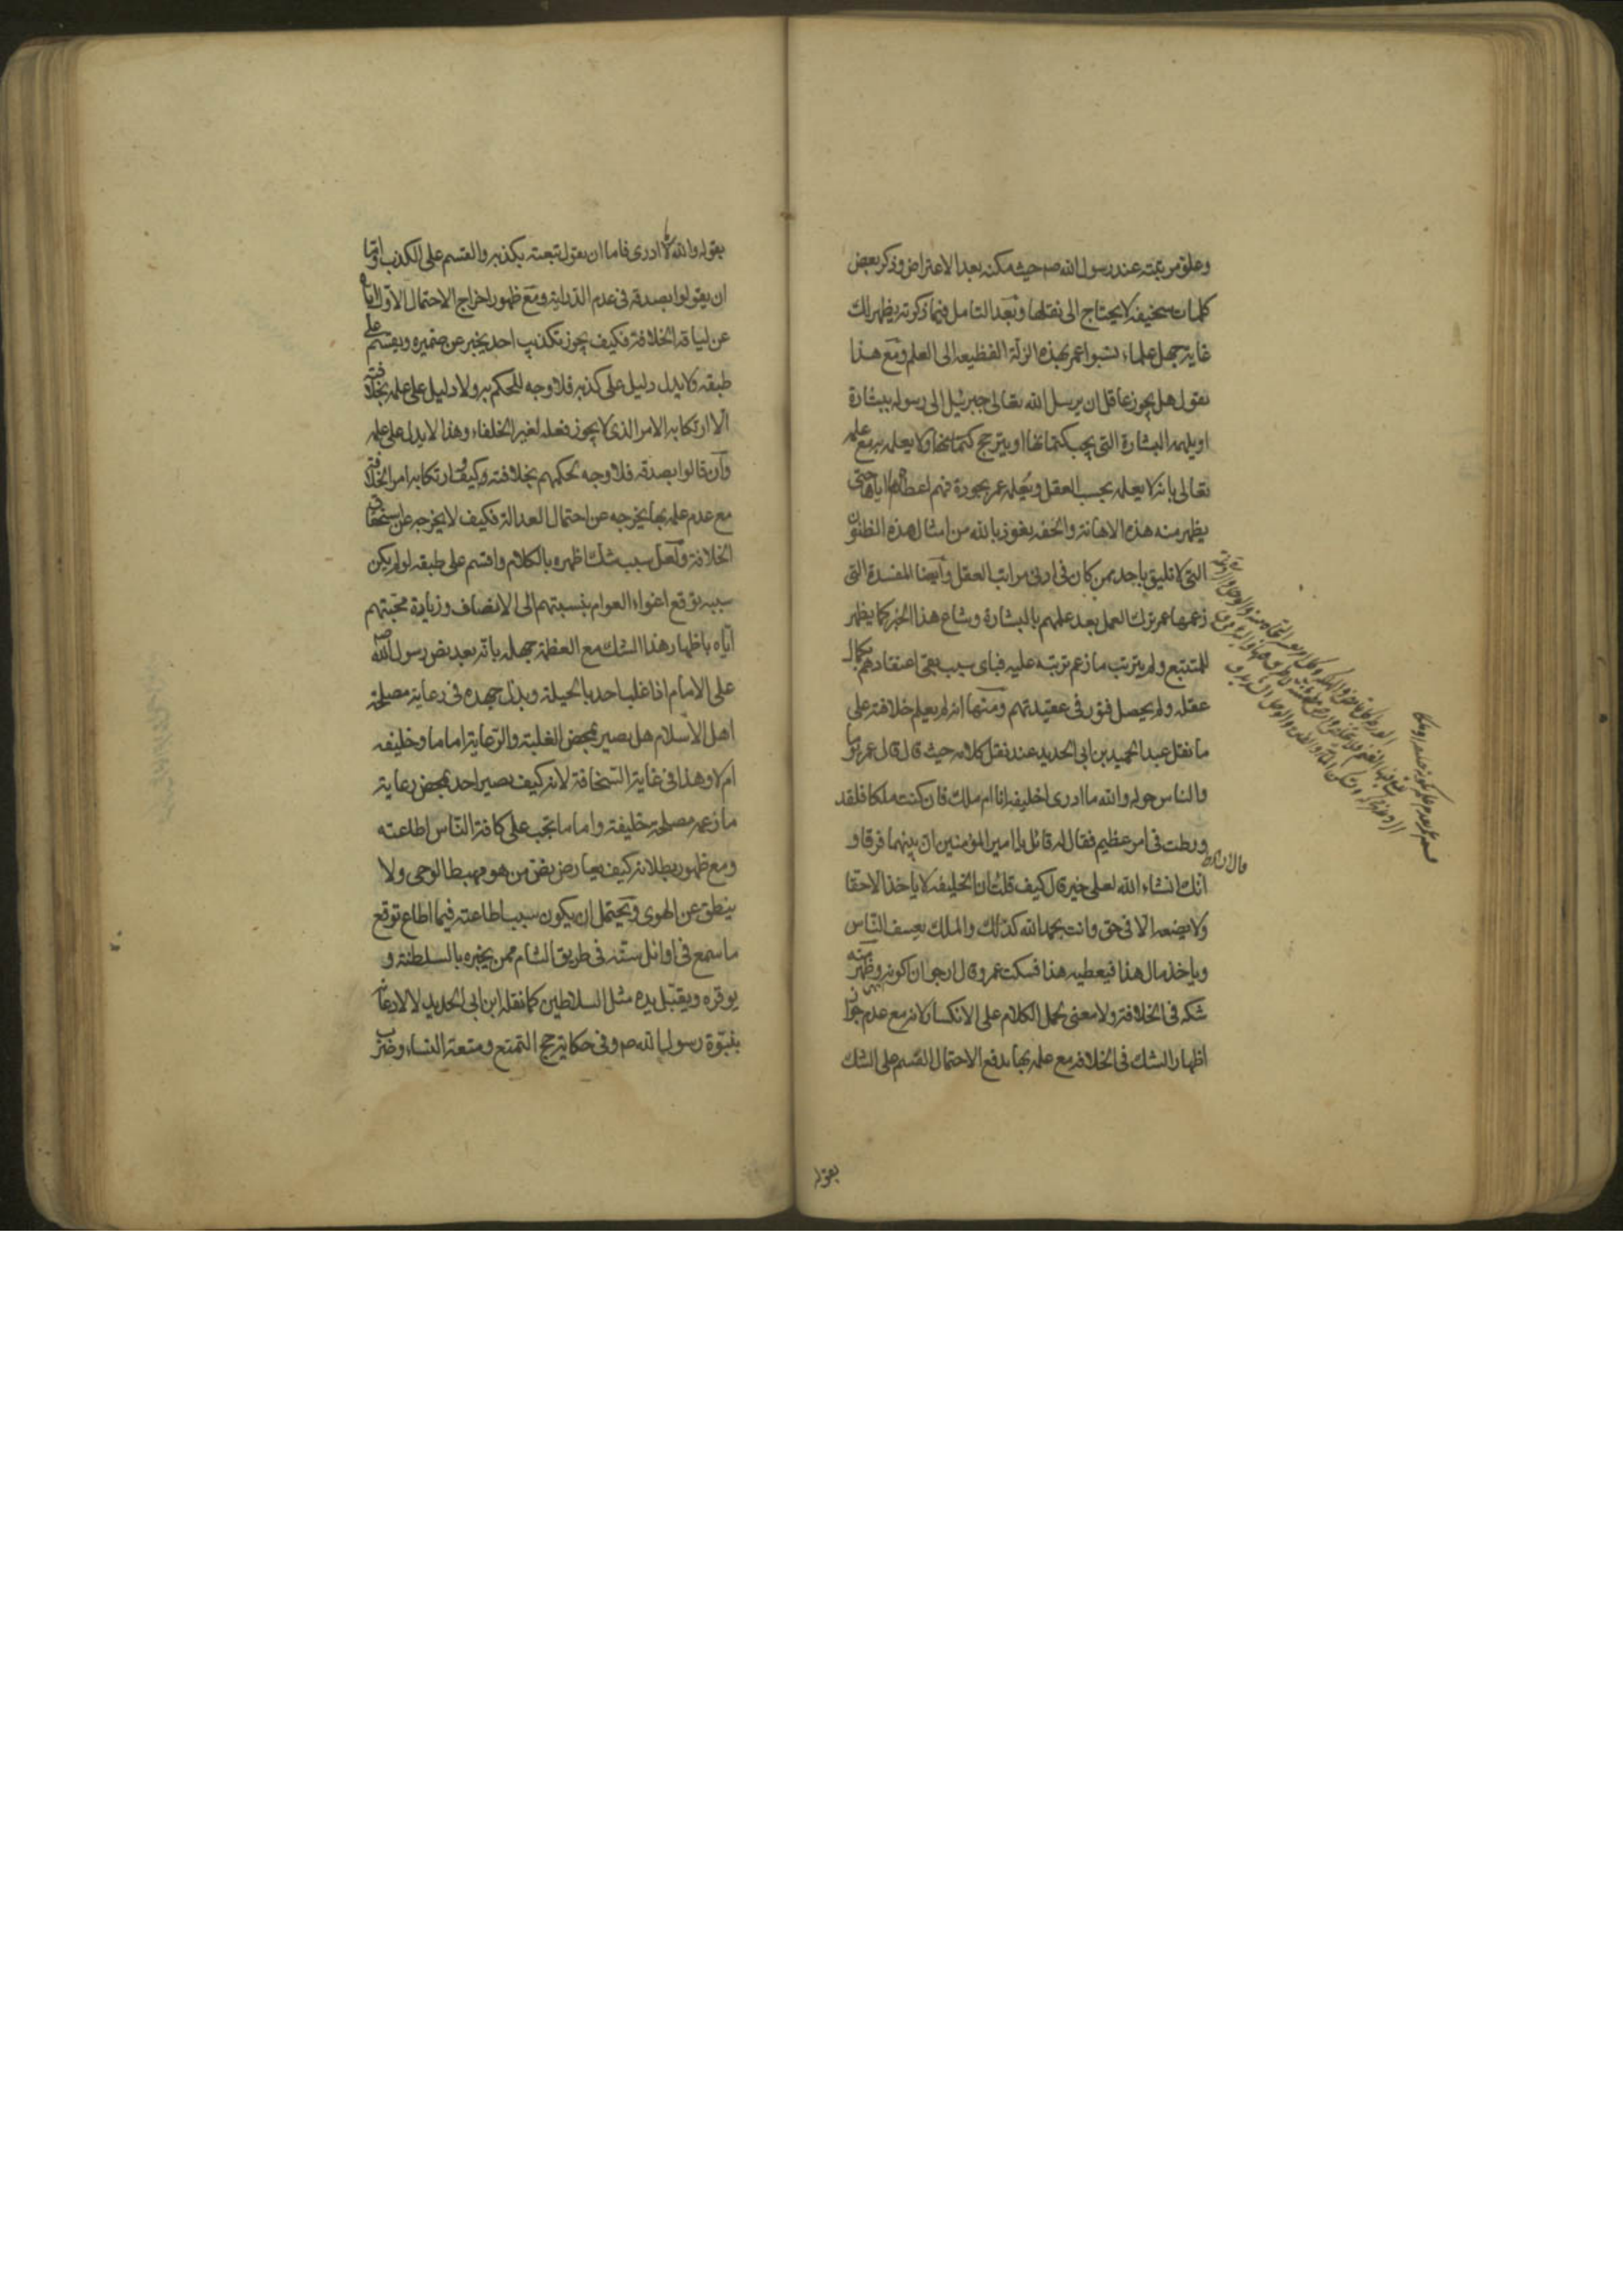 وعلو مرتبته عند رسول الله صم حيث مكنه بعد الاعتراض وذكر بعض
كلمات سخيفه لا يحتاج الى نقلها وبعد التامل فيما ذكرته يظهر لك
غاية جهل علماء نسبوا عمر بهذه الزلة الفظيعه الى العلم ومع هذا
نقول هل يجوز عاقل ان يرسل الله تعالى جبرئيل الى رسوله ببشارة
او يلهمه البشارة التى يجب كتمانها او يترجح كتمانها ولا يعلمه به مع علمه
تعالى بانه لا يعلمه بحسب العقل ويعلمه عمر بجودة فهم اعطاه اياها حتى
يظهر منه هذه الاهانة والخفه نعوذ بالله من امثال هذه الظنون
التى لا تليق باحد ممن كان فى ادنى مراتب العقل وايضا المفسدة التى
زعمها عمر بترك العمل بعد علمهم بالبشارة وشاع هذا الخبر كما يظهر
للمتتبع ولم يترتب ما زعم ترتبه عليه فباى سبب بقى اعتقادهم بكمال
عقله ولم يحصل فتور فى عقيدتهم ومنها انه لم يعلم خلافته على
ما نقل عبد الحميد بن ابى الحديد عند نقل كلامه حيث قال قال عمر يوما
والناس حوله والله ما ادرى اخليفه انا ام ملك فان كنت ملكا فلقد
ورطت فى امر عظيم فقال له قائل يا امير المؤمنين ان بينهما فرقا و
انك انشاء الله لعلى خير قال كيف قلت ان الخليفه لا ياخذ الا حقا
ولا يضعه الا فى حق وانت بحمد الله كذلك والملك يعسف الناس
وياخذ مال هذا فيعطيه هذا فسكت عمر وقال ارجو ان اكونه وظهر منه
شكه فى الخلافة ولا معنى لحمل الكلام على الانكسار لانه مع عدم جواز
اظهار الشك فى الخلافه مع علمه بها يدفع الاحتمال القسم على الشك
بقوله
بقوله والله لا ادرى فاما ان يقول تبعته بكذبه والقسم على الكذب واما
ان يقولوا بصدقه فى عدم الدراية ومع ظهور اخراج الاحتمال الاول اياه
عن لياقه الخلافة فكيف يجوز تكذيب احد يخبر عن ضميره ويقسم على
طبقه ولا يدل دليل على كذبه فلا وجه للحكم به ولا دليل على علمه بخلافته
الا ارتكابه الامر الذى لا يجوز فعله لغير الخلفاء وهذا لا يدل على علمه
وان قالوا بصدقه فلا وجه لحكمهم بخلافته وكيف وارتكابه امر الخلافة
مع عدم علمه بها يخرجه عن احتمال العدالة فكيف لا يخرجه عن استحقاق
الخلافة ولعل سبب شك اظهره بالكلام واقسم على طبقه لو لم يكن
سببه توقع اغواء العوام بنسبتهم الى الانصاف وزيادة محبتهم
اياه باظهار هذا الشك مع العظمة جهله بانه بعد نص رسول الله صم
على الامام اذا غلب احد بالحيلة وبذل جهده فى رعاية مصلحة
اهل الاسلام هل يصير بمحض الغلبة والرعاية اماما وخليفه
ام لا وهذا فى غاية السخافة لانه كيف يصير احد بمحض رعاية
ما زعمه مصلحة خليفة واماما تجب على كافة الناس اطاعته
ومع ظهور بطلانه كيف يعارض نص من هو مهبط الوحى ولا
ينطق عن الهوى ويحتمل ان يكون سبب اطاعته فيما اطاع توقع
ما سمع فى اوائل سنه فى طريق الشام ممن يخبره بالسلطنة و
يوقره ويقبل يده مثل السلاطين كما نقله ابن ابى الحديد لا لاذعان
بنبوة رسول الله صم وفى حكاية حج التمتع ومتعة النساء وضرب